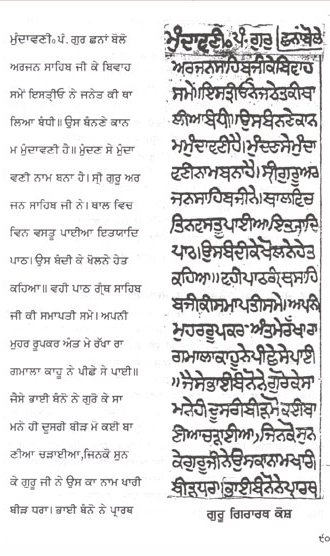 ਮੁੰਦਾਵਣੀ੦ ਪੰ. ਗੁਰ ਛਨਾਂ ਬੋਲੇ
ਅਰਜਨ ਸਾਹਿਬ ਜੀ ਕੇ ਬਿਵਾਹ
ਸਮੇਂ ਇਸਤ੍ਰੀਓ ਨੇ ਜਨੇਤ ਕੀ ਥਾ
ਲਿਆ ਬੰਧੀ॥ ਉਸ ਬੰਨਣੇ ਕਾਨ
ਮ ਮੁੰਦਾਵਣੀ ਹੈ॥ ਮੁੰਦਣ ਸੇ ਮੁੰਦਾ
ਵਣੀ ਨਾਮ ਬਨਾ ਹੈ। ਸ੍ਰੀ ਗੁਰੂ ਅਰ
ਜਨ ਸਾਹਿਬ ਜੀ ਨੇ। ਥਾਲ ਵਿਚ
ਤਿਨ ਵਸਤੂ ਪਾਈਆ ਇਤਯਾਦਿ
ਪਾਠ। ਉਸ ਬੰਦੀ ਕੇ ਖੋਲਨੇ ਹੇਤ
ਕਹਿਆ॥ ਵਹੀ ਪਾਠ ਗ੍ਰੰਥ ਸਾਹਿਬ
ਜੀ ਕੀ ਸਮਾਪਤੀ ਸਮੇ। ਅਪਨੀ
ਮੁਹਰ ਰੂਪਕਰ ਅੰਤ ਮੇ ਰੱਖਾ ਰਾ
ਗਮਾਲਾ ਕਾਹੂ ਨੇ ਪੀਛੇ ਸੇ ਪਾਈ॥
ਜੈਸੇ ਭਾਈ ਬੰਨੋ ਨੇ ਗੁਰੋ ਕੇ ਸਾ
ਮਨੇ ਹੀ ਦੂਸਰੀ ਬੀੜ ਮੋ ਕਈ ਬਾ
ਣੀਆ ਚੜਾਈਆ,ਜਿਨਕੋ ਸੁਨ
ਕੇ ਗੁਰੂ ਜੀ ਨੇ ਉਸ ਕਾ ਨਾਮ ਖਾਰੀ
ਬੀੜ ਧਰਾ। ਭਾਈ ਬੰਨੋ ਨੇ ਪ੍ਰਾਰਥ
ਮੁੰਦਾਵਣੀ੦ ਪੰ. ਗੁਰ ਛਨਾਂਬੋਲੇ
ਅਰਜਨਸਾਹਿਬਜੀਕੇਬਿਵਾਹ
ਸਮੇਂਇਸਤ੍ਰੀਓਨੇਜਨੇਤਕੀਥਾ
ਲਿਆਬੰਧੀ॥ਉਸਬੰਨਣੇਕਾਨ
ਮਮੁੰਦਾਵਣੀਹੈ। ਮੁੰਦਣਸੇਮੁੰਦਾ
ਵਣੀਨਾਮਬਨਾਹੈ। ਸ੍ਰੀਗੁਰੂਅਰ
ਜਨਸਾਹਿਬਜੀਨੇ। ਥਾਲਵਿਚ
ਤਿਨਵਸਤੂਪਾਈਆਇਤਯਾਦਿ
ਪਾਠ। ਉਸਬੰਦੀਕੇਖੋਲਨੇਹੇਤ
ਕਹਿਆ॥ਵਹੀਪਾਠਗ੍ਰੰਥਸਾਹਿ
ਬਜੀਕੀਸਮਾਪਤੀਸਮੇ। ਅਪਨੀ
ਮੁਹਰਰੂਪਕਰ ਅੰਤਮੇਰੱਖਾਰਾ
ਗਮਾਲਾਕਾਹੂਨੇਪੀਛੇਸੇਪਾਈ
॥ਜੈਸੇਭਾਈਬੰਨੋਨੇਗੁਰੋਕੇਸਾ
ਮਨੇਹੀਦੂਸਰੀਬੀੜਮੋਕਈਬਾ
ਣੀਆਚੜਾਈਆ,ਜਿਨਕੋਸੁਨ
ਕੇਗੁਰੂਜੀਨੇਉਸਕਾਨਾਮਖਾਰੀ
ਬੀੜਧਰਾ।ਭਾਈਬੰਨੋਨੇਪ੍ਰਾਰਥ
ਗੁਰੂ ਗਿਰਾਰਥ ਕੋਸ਼